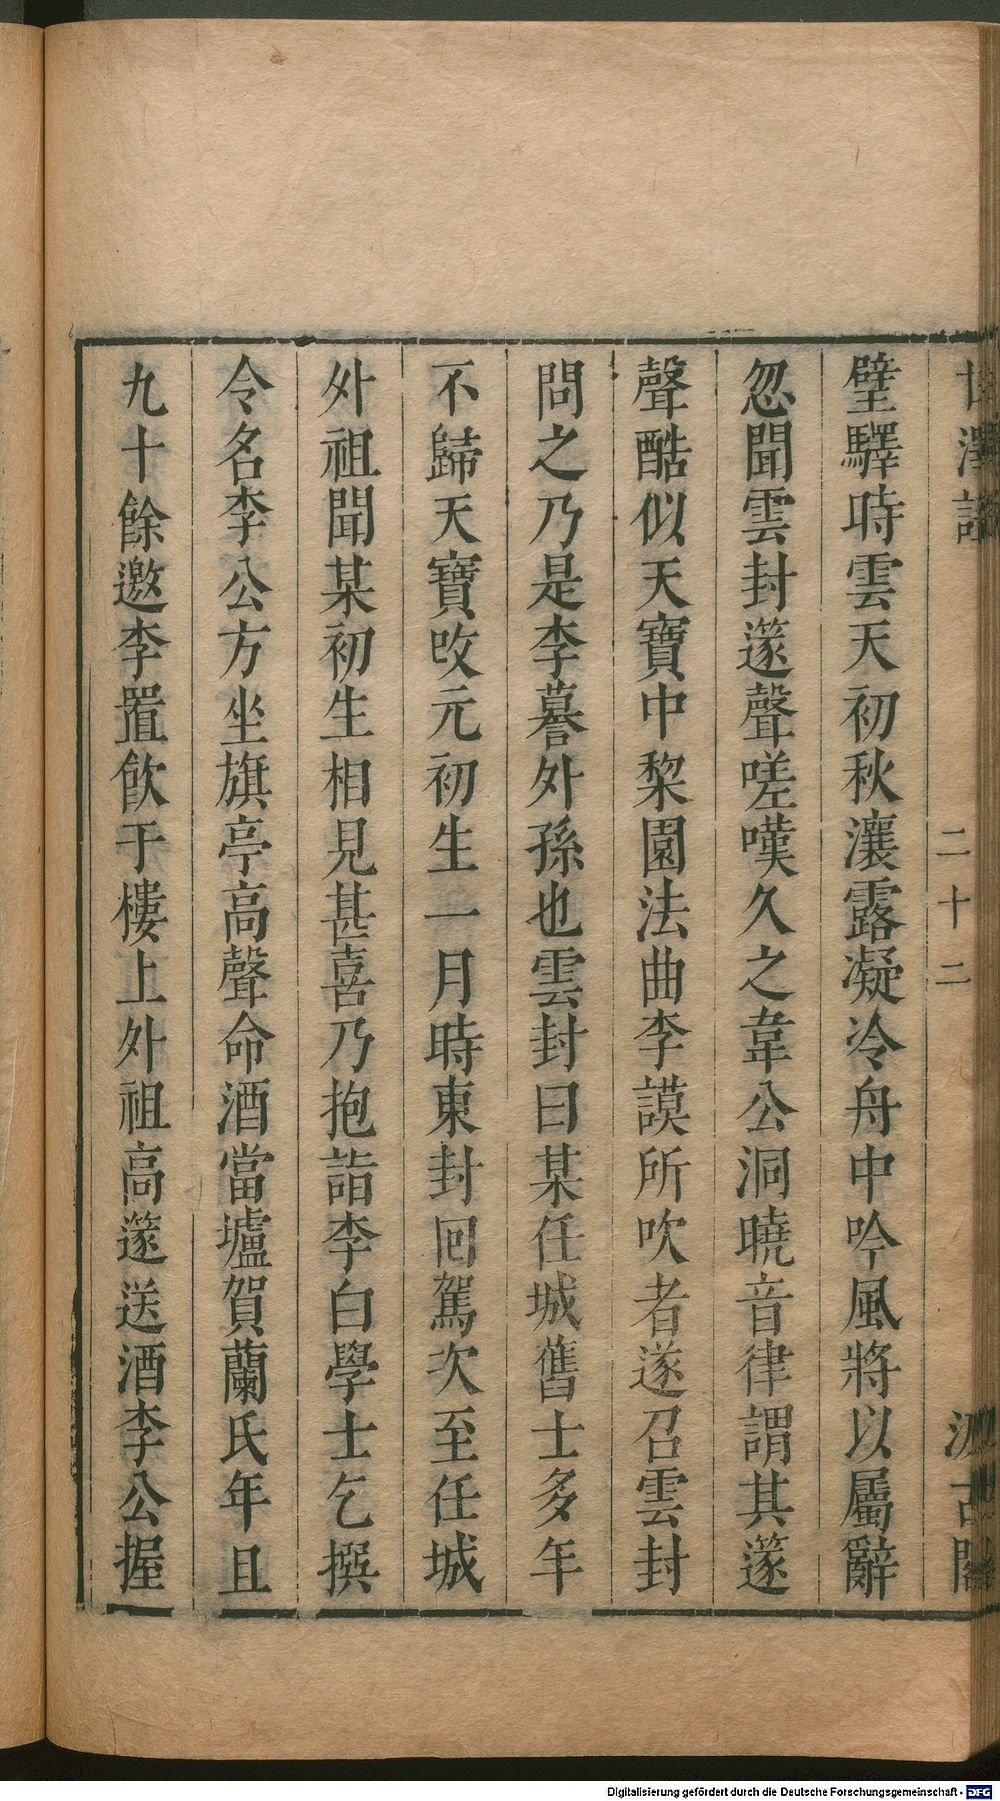 甘澤謠 二十二 汲古閣
璧驛時雲天初秋瀼露凝冷舟中吟風將以屬辭
忽聞雲封篴聲嗟嘆久之韋公洞曉音律謂其篴
聲酷似天寶中棃園法曲李謨所吹者遂召雲封
問之乃是李謩外孫也雲封曰某任城舊士多年
不歸天寶改元初生一月時東封回駕次至任城
外祖聞某初生相見甚喜乃抱詣李白學士乞撰
令名李公方坐旗亭高聲命酒當壚賀蘭氏年且
九十餘邀李置飲于樓上外祖高篴送酒李公握
Digitalisierung gefördert durch die Deutsche Forschungsgemeinschaft - DFG